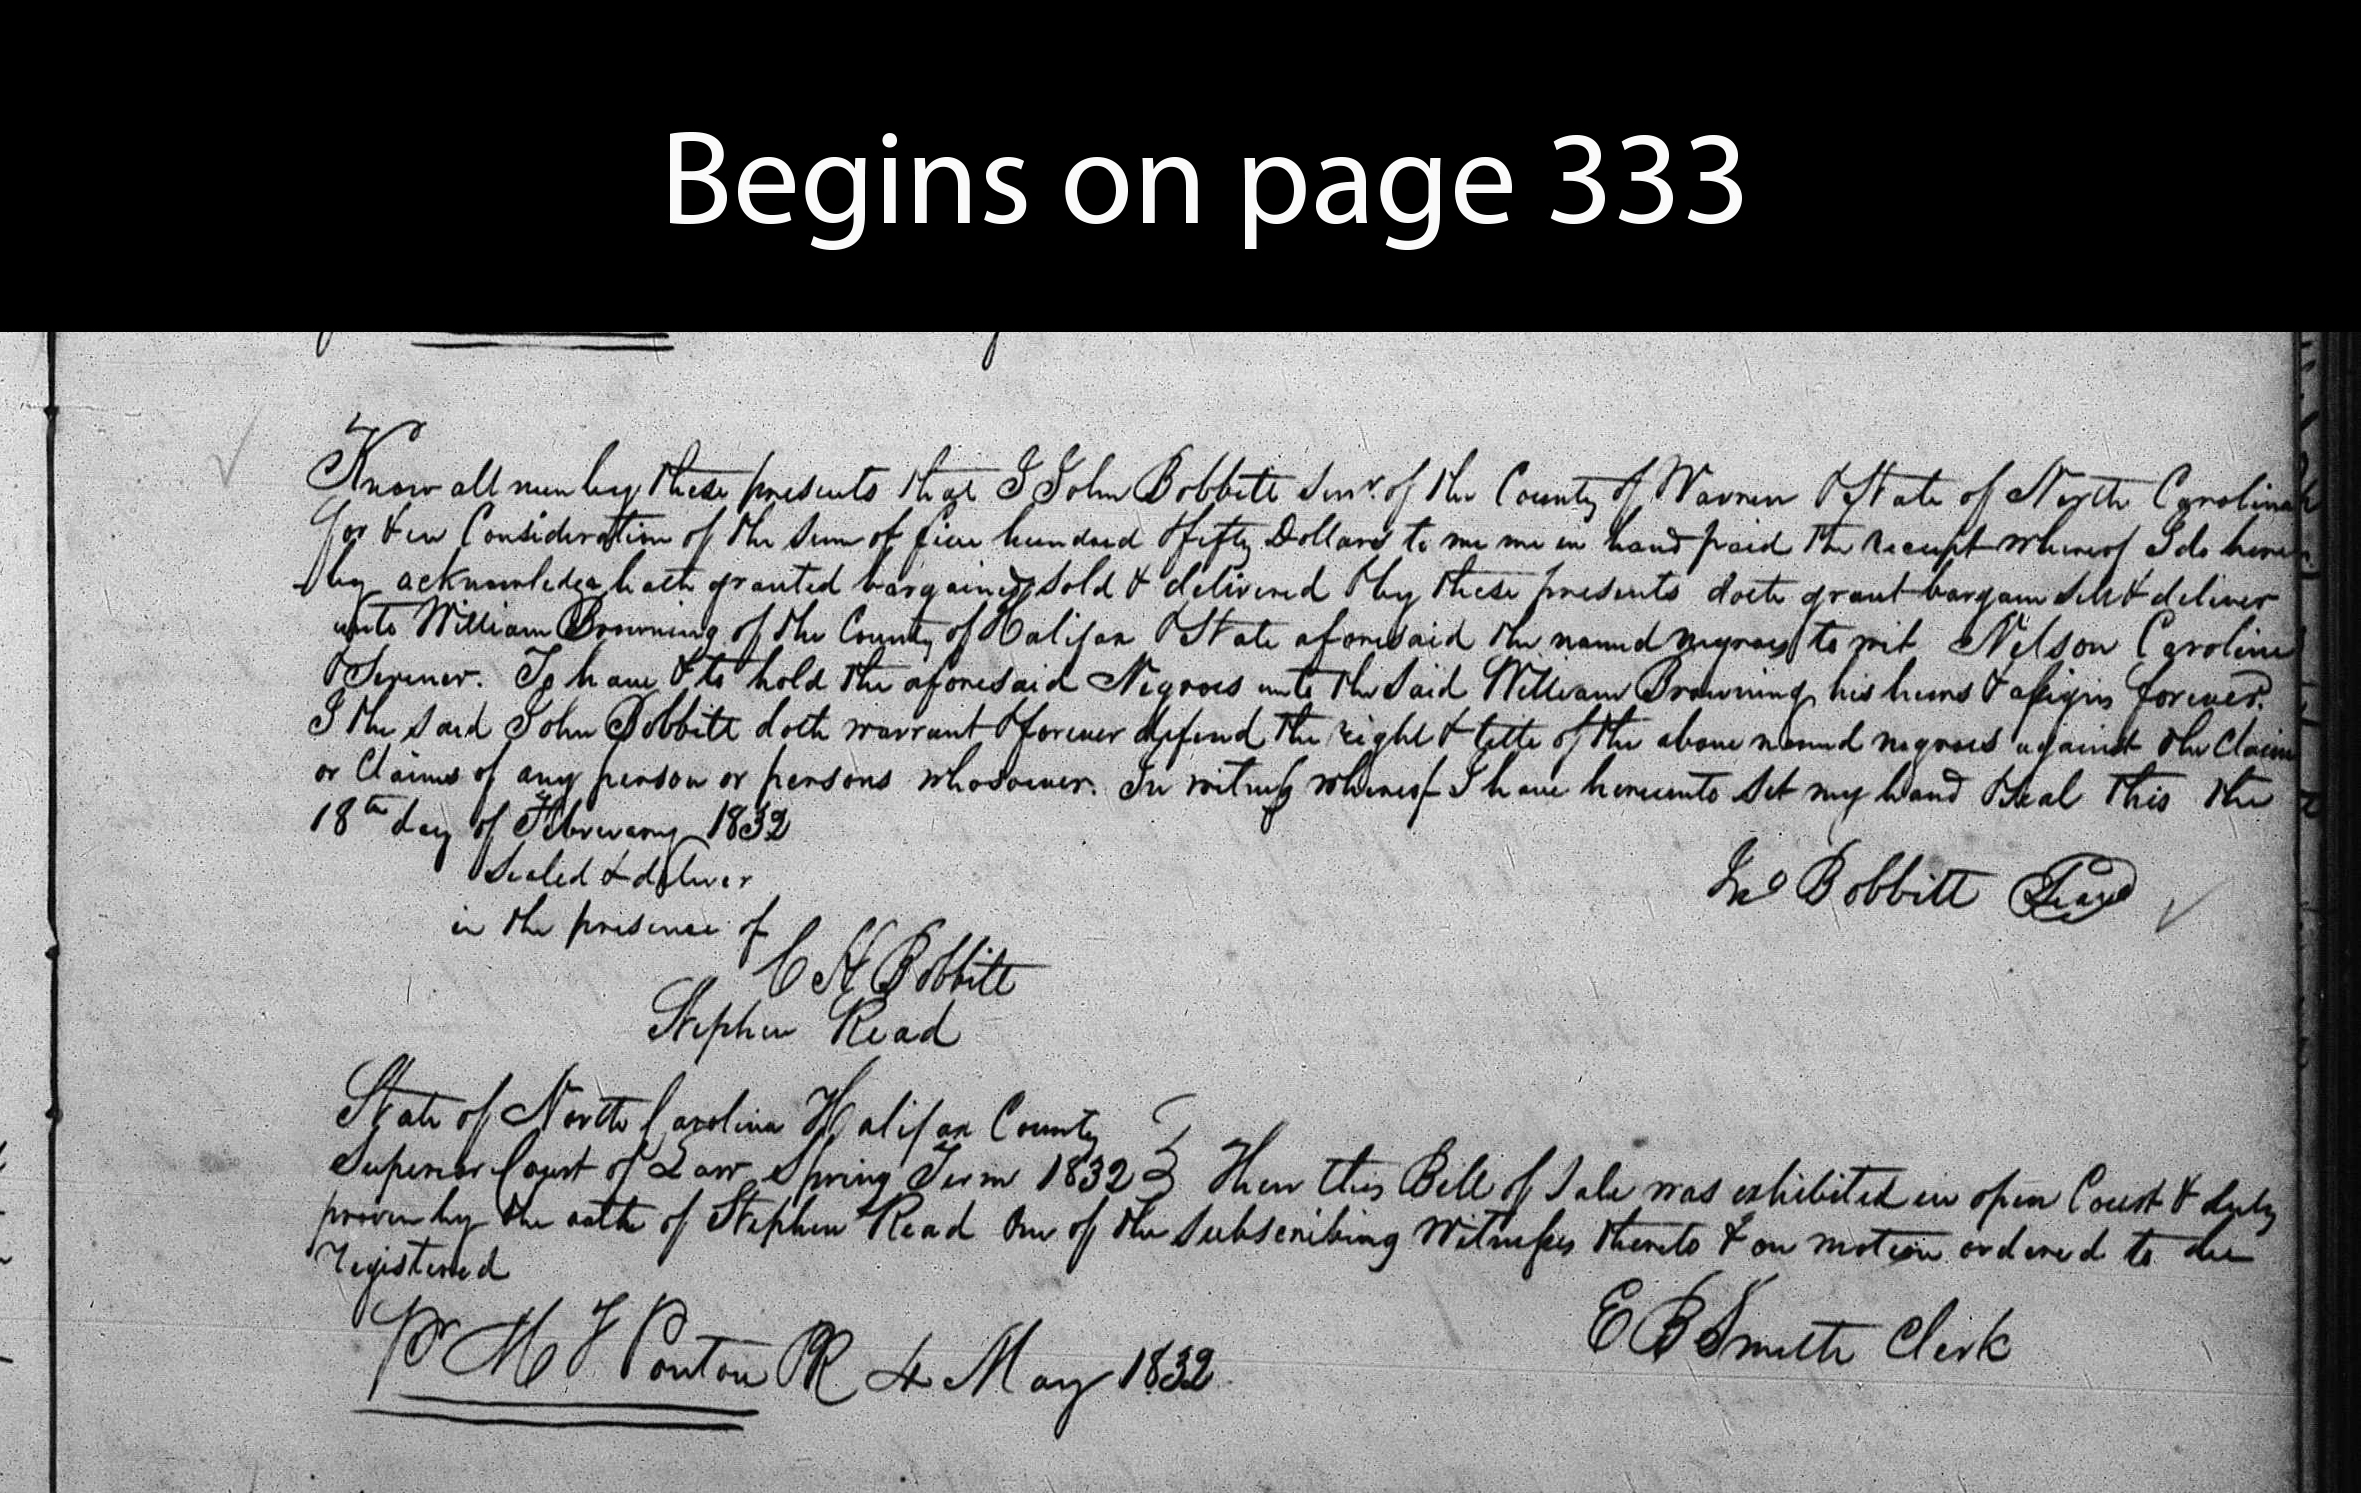 Begins on page 333
Know all men by these presents that I John Bobbitt Senr. of the County of Warren & State of North Carolina
for & in Consideration of the Sum of five hundred & fifty Dollars to me me in hand paid the receipt whereof I do here
by acknowledge hath granted bargained sold & delivered & by these presents doth grant bargain sell & deliver
unto William Browning of the County of Halifax & State aforesaid the named negroes to wit Nelson Caroline
& To have & to hold the aforesaid Negroes unto the Said William Browning his heirs & assigns forever.
I the said John Bobbitt doth warrant & forever defend the right & title of the above named negroes against the Claim
or Claims of any person or persons whosoever. In witness whereof I have hereunto Set my hand & Seal this the
18th day of February 1832
Sealed & deliver
in the presence of
Jno Bobbitt Seal
C H Bobbitt
Stephen Read
State of North Carolina Halifax County
Superior Court of Law Spring Term 1832 } Then this Bill of Sale was exhibited in open Court & duly
proven by the oath of Stephen Read One of the Subscribing Witnesses thereto & on motion ordered to be
registered
E B Smith Clerk
Pr M F Ponton PR 4 May 1832